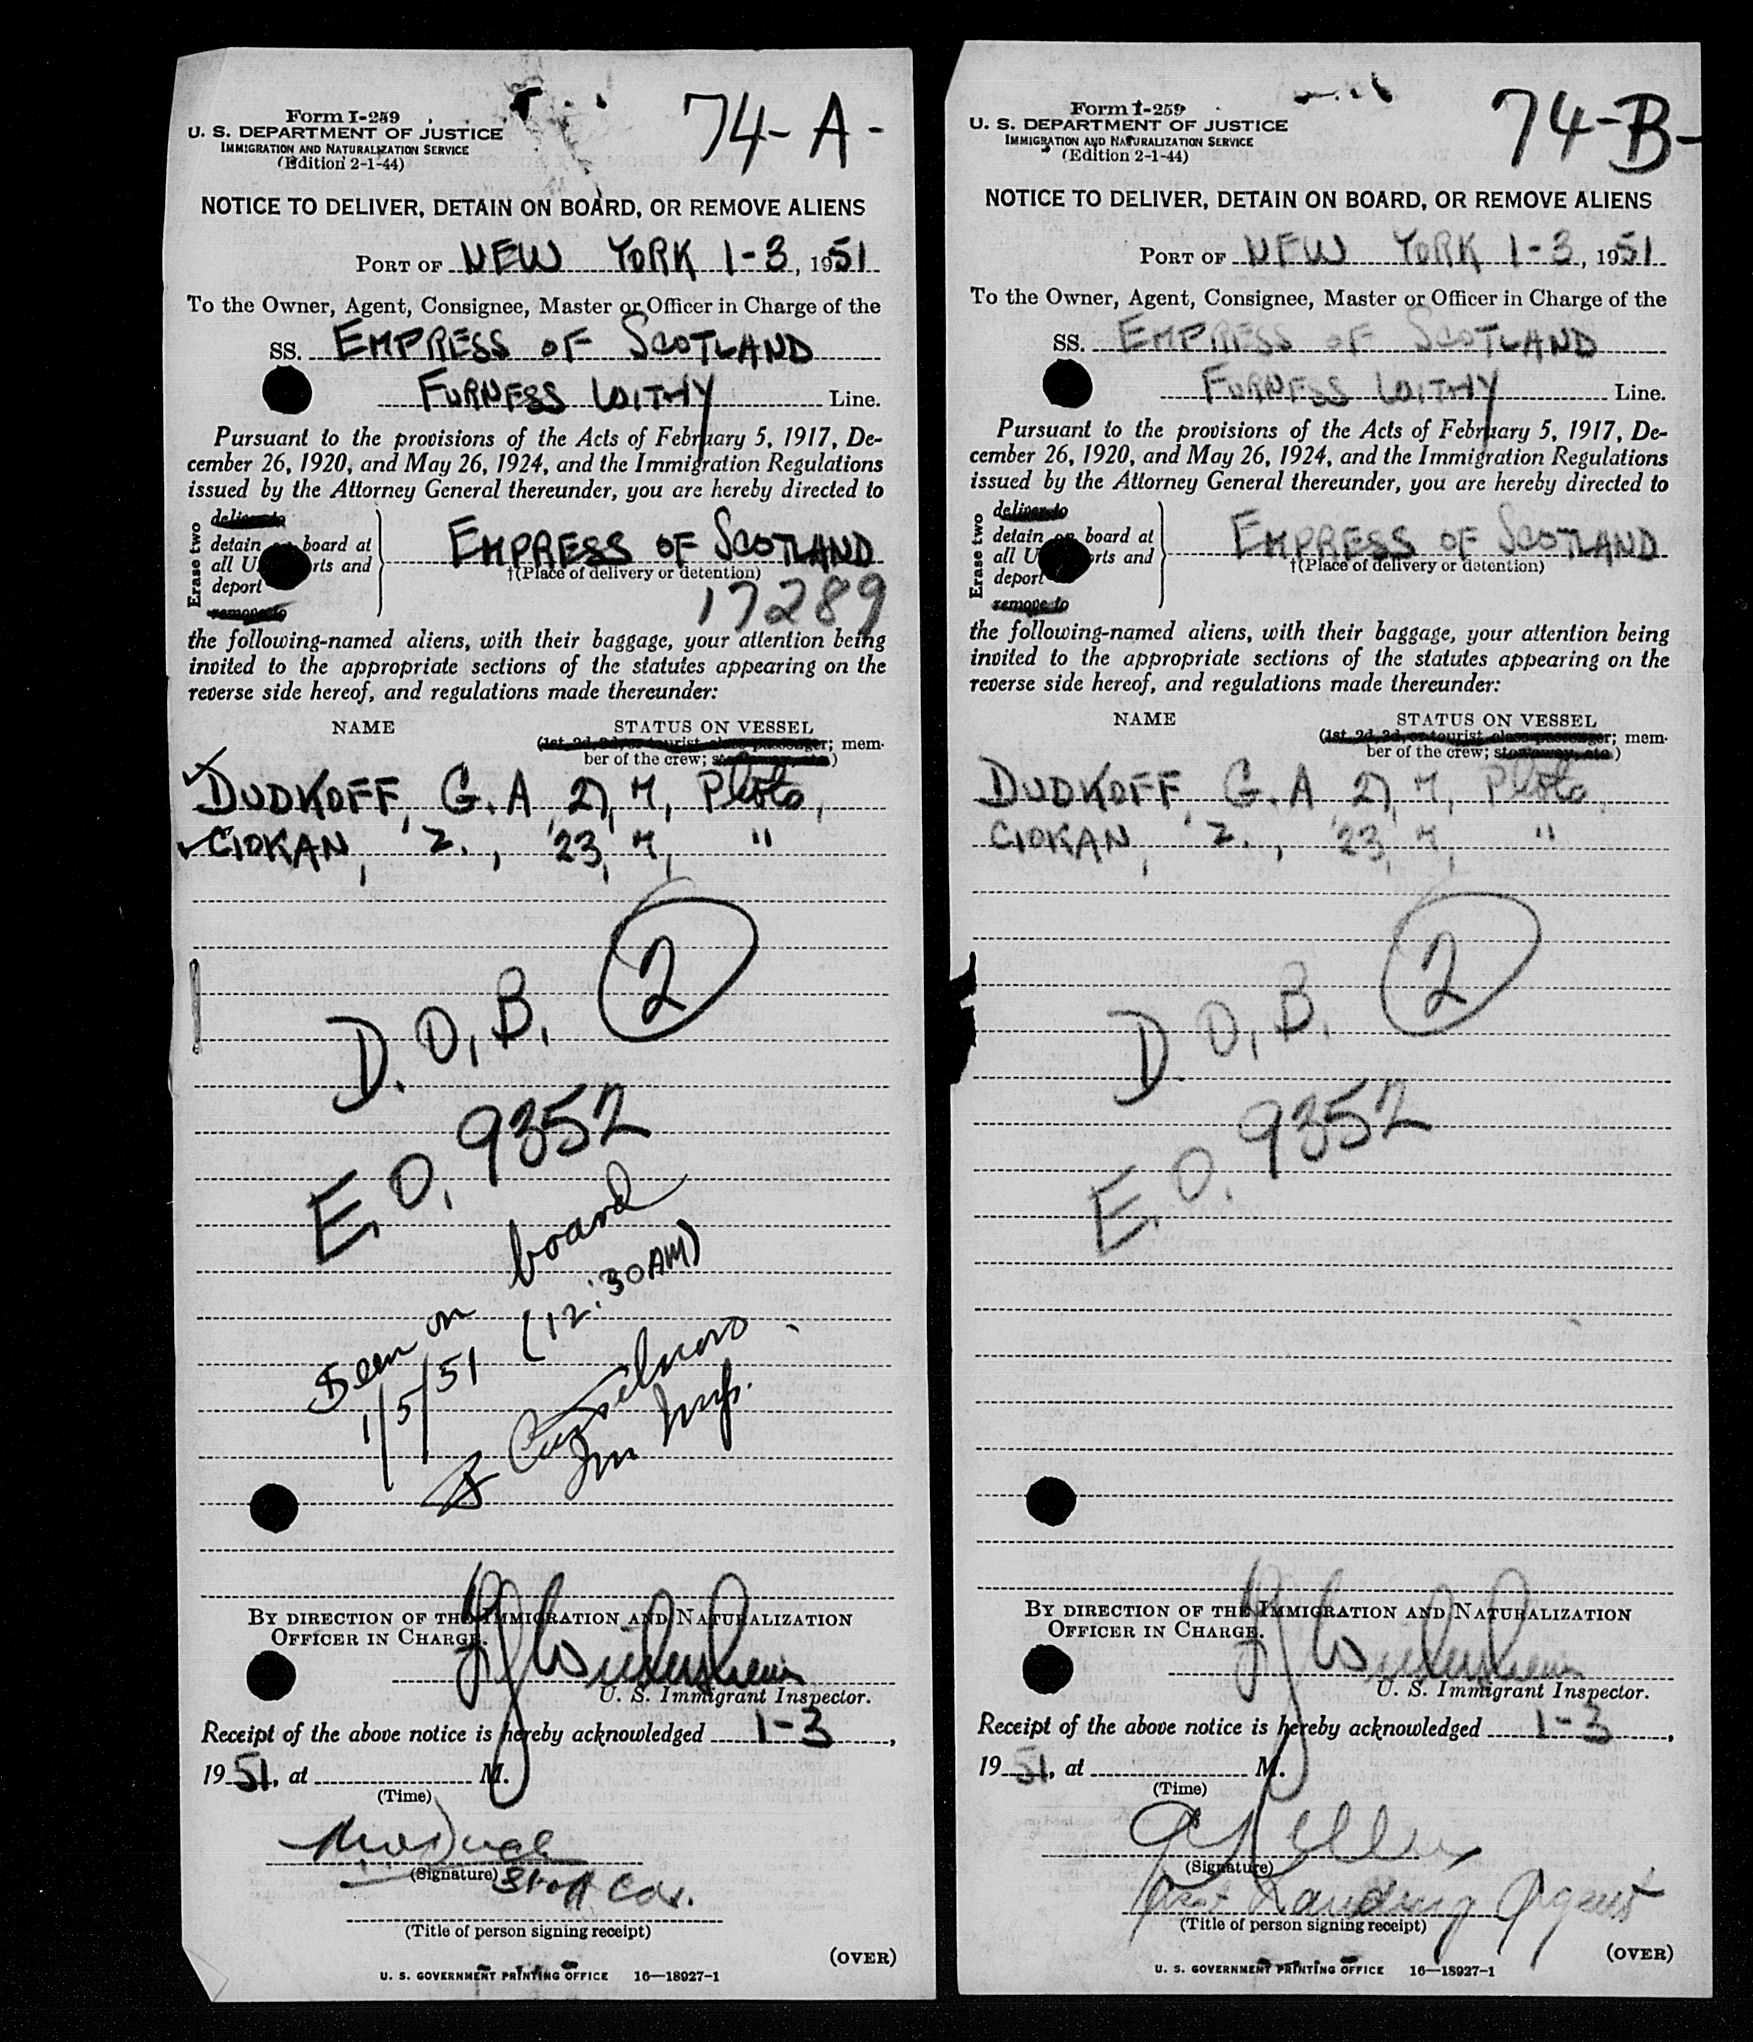 Form I-259
U. S. DEPARTMENT OF JUSTICE
IMMIGRATION AND NATURALIZATION SERVICE
(Edition 2-1-44)
74-A-
NOTICE TO DELIVER, DETAIN ON BOARD, OR REMOVE ALIENS
PORT OF NEW YORK 1-3, 1951
To the Owner, Agent, Consignee, Master or Officer in Charge of the
SS. EMPRESS OF SCOTLAND
FURNESS WITHY Line.
Pursuant to the provisions of the Acts of February 5, 1917, De-
cember 26, 1920, and May 26, 1924, and the Immigration Regulations
issued by the Attorney General thereunder, you are hereby directed to
Erase two
deliver to
detain on board at
all U rts and
deport
remove to
EMPRESS OF SCOTLAND
†(Place of delivery or detention)
17289
the following-named aliens, with their baggage, your attention being
invited to the appropriate sections of the statutes appearing on the
reverse side hereof, and regulations made thereunder:
NAME STATUS ON VESSEL
(1st, 2d, 3d, or tourist class passenger; mem-
ber of the crew; stowaway, etc.)
DUDKOFF, G. A, 27, M,
CIOKAN, Z., 23, M, "
2
D. O. B.
E. O. 9352
Seen on board
1/5/51 (12:30AM)
Imm Insp.
BY DIRECTION OF THE IMMIGRATION AND NATURALIZATION
OFFICER IN CHARGE.
U. S. Immigrant Inspector.
Receipt of the above notice is hereby acknowledged 1-3,
1951, at M.
(Time)
(Signature)
Staff
(Title of person signing receipt)
(OVER)
U. S. GOVERNMENT PRINTING OFFICE 16—18927-1
Form I-259
U. S. DEPARTMENT OF JUSTICE
IMMIGRATION AND NATURALIZATION SERVICE
(Edition 2-1-44)
74-B-
NOTICE TO DELIVER, DETAIN ON BOARD, OR REMOVE ALIENS
PORT OF NEW YORK 1-3, 1951
To the Owner, Agent, Consignee, Master or Officer in Charge of the
SS. EMPRESS OF SCOTLAND
FURNESS WITHY Line.
Pursuant to the provisions of the Acts of February 5, 1917, De-
cember 26, 1920, and May 26, 1924, and the Immigration Regulations
issued by the Attorney General thereunder, you are hereby directed to
Erase two
deliver to
detain on board at
all U rts and
deport
remove to
EMPRESS OF SCOTLAND
†(Place of delivery or detention)
the following-named aliens, with their baggage, your attention being
invited to the appropriate sections of the statutes appearing on the
reverse side hereof, and regulations made thereunder:
NAME STATUS ON VESSEL
(1st, 2d, 3d, or tourist class passenger; mem-
ber of the crew; stowaway, etc.)
DUDKOFF, G. A 27, M,
CIOKAN, Z., 23, M, "
2
D. O. B.
E. O. 9352
BY DIRECTION OF THE IMMIGRATION AND NATURALIZATION
OFFICER IN CHARGE.
U. S. Immigrant Inspector.
Receipt of the above notice is hereby acknowledged 1-3,
1951, at M.
(Time)
(Signature)
Landing Agent
(Title of person signing receipt)
(OVER)
U. S. GOVERNMENT PRINTING OFFICE 16—18927-1